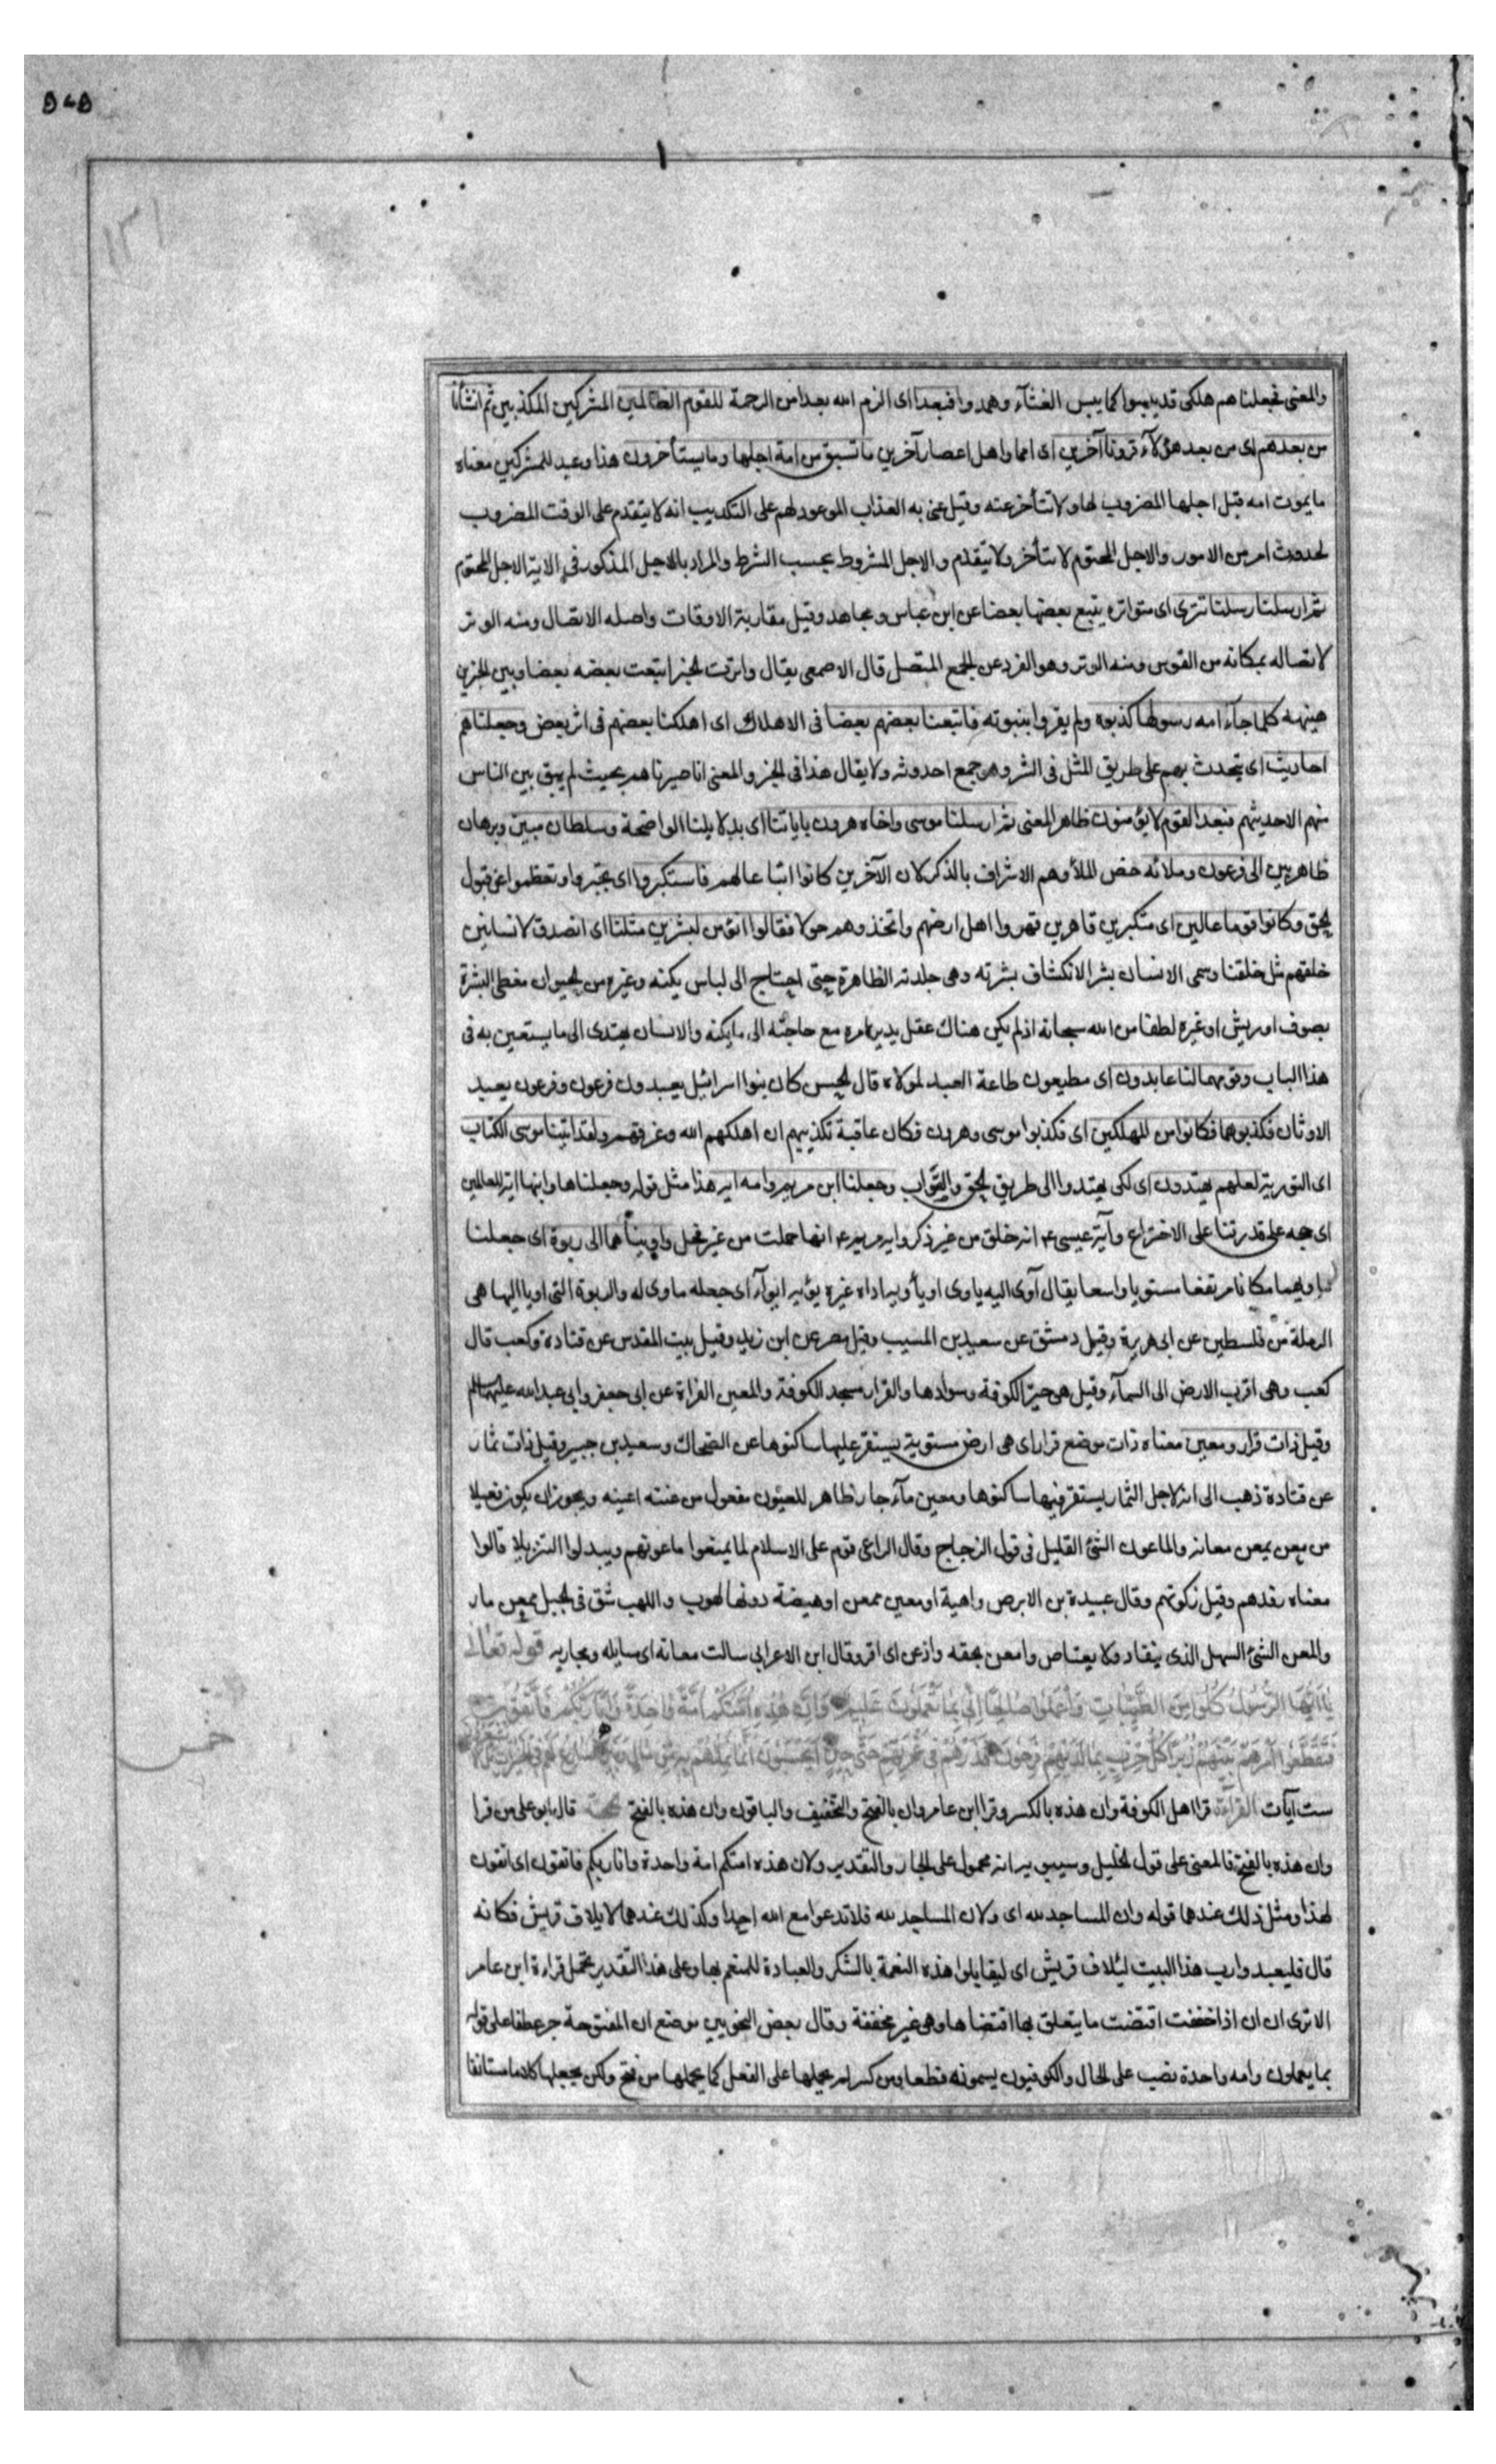 والمعنی فجعلناهم هلکی قد یبسوا کما یبس الغثآء وهمدوا فبعدا ای الزم الله بعدا من الرحمة للقوم الظالمین المشرکین المکذبین ثم انشأنا
من بعدهم ای من بعد هؤلآء قرونا آخرین ای امما واهل اعصار آخرین ما تسبق من امة اجلها وما یستأخرون هذا وعید للمشرکین معناه
ما یموت امه قبل اجلها المضروب لها ولا تتأخر عنه وقیل عنی به العذاب الموعود لهم علی التکذیب انه لا یتقدم علی الوقت المضروب
لحدوث امر من الامور والاجل المحتوم لا یتأخر ولا یتقدم والاجل المشروط بحسب الشرط والمراد بالاجل المذکور فی الایة الاجل المحتوم
ثم ارسلنا رسلنا تتری ای متواتره یتبع بعضها بعضا عن ابن عباس ومجاهد وقیل مقاربة الاوقات واصله الاتصال ومنه الوتر
لاتصاله بمکانه من القوس ومنه الوتر وهو الفرد عن الجمع المتصل قال الاصمعی یقال واترت الخبر اتبعت بعضه بعضا وبین الخبرین
هینهه کلما جآء امه رسولها کذبوه ولم یقروا بنبوته فاتبعنا بعضهم بعضا فی الاهلاک ای اهلکنا بعضهم فی اثر بعض وجعلناهم
احادیث ای یتحدث بهم علی طریق المثل فی الشر وهو جمع احدوثه ولا یقال هذا فی الخیر والمعنی انا صیرناهم بحیث لم یبق بین الناس
منهم الا حدیثهم فبعدا لقوم لا یؤمنون ظاهر المعنی ثم ارسلنا موسی واخاه هرون بایاتنا ای بدلایلنا الواضحة وسلطان مبین وبرهان
ظاهر بین الی فرعون وملائه خص الملأ وهم الاشراف بالذکر لان الآخرین کانوا اتباعا لهم فاستکبروا ای تجبروا وتعظموا عن قبول
الحق وکانوا قوما عالین ای متکبرین قاهرین قهروا اهل ارضهم واتخذوهم خولا فقالوا انؤمن لبشرین مثلنا ای انصدق لانسانین
خلقهم مثل خلقنا وسمی الانسان بشرا لانکشاف بشرته وهی جلدته الظاهرة حتی احتاج الی لباس یکنه وغیره من الحیوان مغطی البشرة
بصوف او ریش او غیره لطفا من الله سبحانه اذ لم یکن هناک عقل یدبر امره مع حاجته الی ما یکنه والانسان یهتدی الی ما یستعین به فی
هذا الباب وقومهما لنا عابدون ای مطیعون طاعة العبد لمولاه قال الحسن کان بنوا اسرائیل یعبدون فرعون وفرعون یعبد
الاوثان فکذبوهما فکانوا من المهلکین ای فکذبوا موسی وهرون فکان عاقبة تکذیبهم ان اهلکهم الله وغرقهم ولقد اتینا موسی الکتاب
ای التوریة لعلهم یهتدون ای لکی یهتدوا الی طریق الحق والثواب وجعلنا ابن مریم وامه ایة هذا مثل قوله وجعلناها وابنها ایة للعالمین
ای حجه علی قدرتنا علی الاختراع وآیة عیسی ع انه خلق من غیر ذکر وایه مریم ع انها حملت من غیر فحل واویناهما الی ربوة ای جعلنا
ماویهما مکانا مرتفعا مستویا واسعا یقال آوی الیه یاوی اویا وآواه غیره یؤیه ایوآء ای جعله ماوی له والربوة التی اویا الیها هی
الرملة من فلسطین عن ابی هریرة وقیل دمشق عن سعید بن المسیب وقیل مصر عن ابن زید وقیل بیت المقدس عن قتادة وکعب قال
کعب وهی اقرب الارض الی السمآء وقیل هی حیرة الکوفة وسوادها والقرار مسجد الکوفة والمعین الفراة عن ابی جعفر وابی عبدالله علیهماالسلم
وقیل ذات قرار ومعین معناه ذات موضع قرار ای هی ارض مستویة یستقر علیها ساکنوها عن الضحاک وسعید بن جبیر وقیل ذات ثمار
عن قتادة ذهب الی انه لاجل الثمار یستقر فیها ساکنوها ومعین مآء جار ظاهر للعیون مفعول من عنته اعینه ویجوز ان یکون فعیلا
من معن یمعن معانة والماعون الشئ القلیل فی قول الزجاج وقال الراعی قوم علی الاسلام لما یمنعوا ماعونهم ویبدلوا التنزیلا قالوا
معناه رفدهم وقیل زکوتهم وقال عبیدة بن الابرص واهیة او معین ممعن او هیضة دونها لهوب واللهب شق فی الجبل ممعن مار
والمعن الشئ السهل الذی ینقاد ولا یعتاص وامعن بحقه واذعن ای اقر وقال ابن الاعرابی سالت معانه ای مسایله ومجاریه قوله تعالی
یا ایها الرسل کلوا من الطیبات واعملوا صالحا انی بما تعملون علیم وان هذه امتکم امة واحدة وانا ربکم فاتقون
فتقطعوا امرهم بینهم زبرا کل حزب بما لدیهم فرحون فذرهم فی غمرتهم حتی حین ایحسبون انما نمدهم به من مال وبنین نسارع لهم فی الخیرات بل لا یشعرون
ست آیات القرآءة قرا اهل الکوفة وان هذه بالکسر وقرا ابن عامر وان بالفتح والتخفیف والباقون وان هذه بالفتح الحجة قال ابو علی من قرا
وان هذه بالفتح فالمعنی علی قول الخلیل وسیبویه انه محمول علی الجار والتقدیر ولان هذه امتکم امة واحدة وانا ربکم فاتقون ای اتقون
لهذا ومثل ذلک عندهما قوله وان المساجد لله ای ولان المساجد لله فلا تدعوا مع الله احدا وکذلک عندهما لایلاف قریش فکانه
قال فلیعبدوا رب هذا البیت لئلاف قریش ای لیقابلوا هذه النعمة بالشکر والعبادة للمنعم بها وعلی هذا التقدیر یحمل قراءة ابن عامر
الا تری ان ان اذا خففت اقتضت ما یتعلق بها اقتضاها وهی غیر مخففة وقال بعض النحویین موضع ان المفتوحة جر عطفا علی قوله
بما یعملون وامه واحدة نصب علی الحال والکوفیون یسمونه قطعا ومن کسر لم یحملها علی الفعل کما یحملها من فتح ولکن یجعلها کلاما مستانفا
خمس